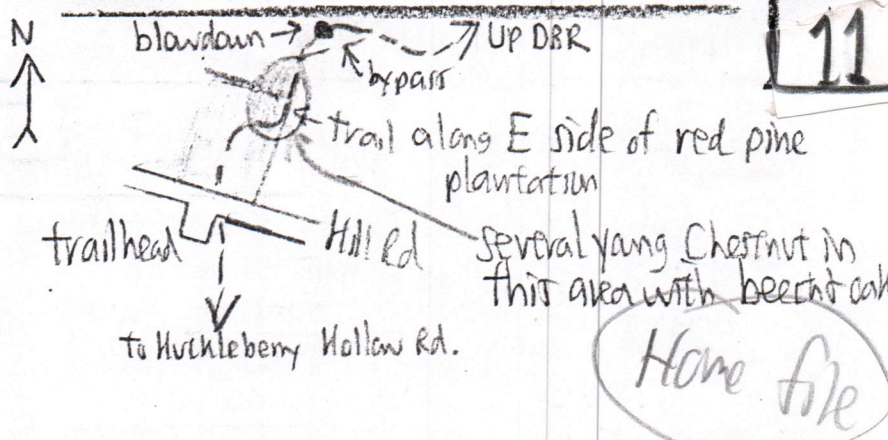 N
blowdown
UP DBR
11
bypass
trail along E side of red pine
plantation
trailhead
Hill Rd
several young Chestnut in
this area with beech & oak
to Huckleberry Hollow Rd.
Home file